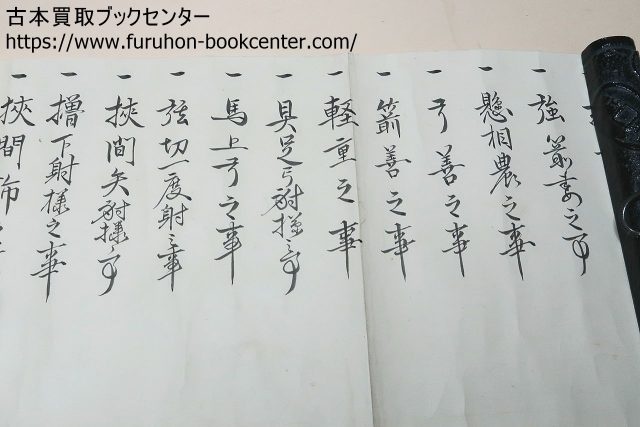 古本買取ブックセンター
https://www.furuhon-bookcenter.com/
一 強箭妻之事
一 懸相農之事
一 弓善之事
一 箭善之事
一 軽重之事
一 具足弓射様之事
一 馬上弓之事
一 弦切一度射之事
一 挾間矢射様之事
一 櫓下射様之事
挾間布